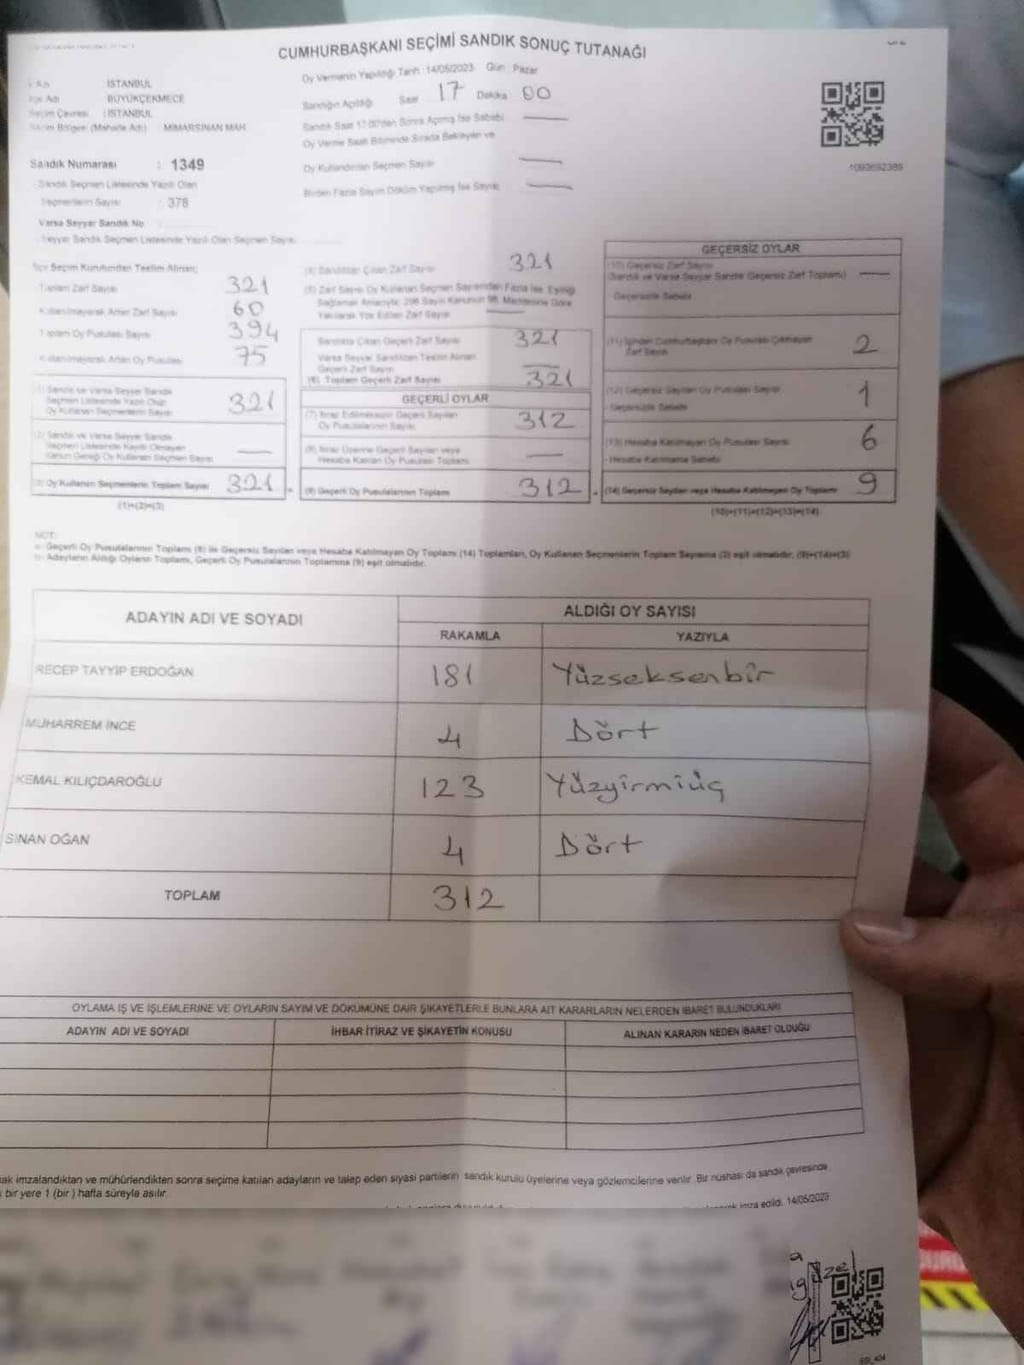 CUMHURBAŞKANI SEÇİMİ SANDIK SONUÇ TUTANAĞI
İSTANBUL
BÜYÜKÇEKMECE
Seçim Çevresi : İSTANBUL
(Mahalle Adı) MİMARSİNAN MAH.
Sandık Numarası : 1349
Sandık Seçmen Listesinde Yazılı Olan
Seçmenlerin Sayısı : 378
Varsa Seyyar Sandık No
Seyyar Sandık Seçmen Listesinde Yazılı Olan Seçmen Sayısı
Oy Vermenin Yapıldığı Tarih :14/05/2023 Gün : Pazar
Sandığın Açıldığı Saat 17 Dakika 00
Sandık Saat 17:00'den Sonra Açılmış İse Sebebi
Oy Verme Saati Bitiminde Sırada Bekleyen ve
Oy Kullandırılan Seçmen Sayısı
Birden Fazla Sayım Döküm Yapılmış İse Sayısı
1093692389
İlçe Seçim Kurulundan Teslim Alınan;
Toplam Zarf Sayısı 321
Kullanılmayarak Artan Zarf Sayısı 60
Toplam Oy Pusulası Sayısı 394
Kullanılmayarak Artan Oy Pusulası 75
(1) Sandık ve Varsa Seyyar Sandık
Seçmen Listesinde Yazılı Olup
Oy Kullanan Seçmenlerin Sayısı 321
(2) Sandık ve Varsa Seyyar Sandık
Seçmen Listesinde Kayıtlı Olmayan
Kanun Gereği Oy Kullanan Seçmen Sayısı
(3) Oy Kullanan Seçmenlerin Toplam Sayısı 321
(1)+(2)=(3)
(4) Sandıktan Çıkan Zarf Sayısı 321
(5) Zarf Sayısı Oy Kullanan Seçmen Sayısından Fazla İse, Eşitliği
Sağlamak Amacıyla, 298 Sayılı Kanunun 98. Maddesine Göre
Yakılarak Yok Edilen Zarf Sayısı
Sandıkta Çıkan Geçerli Zarf Sayısı 321
Varsa Seyyar Sandıktan Teslim Alınan
Geçerli Zarf Sayısı
(6) Toplam Geçerli Zarf Sayısı 321
GEÇERLİ OYLAR
(7) İtiraz Edilmeksizin Geçerli Sayılan
Oy Pusulalarının Sayısı 312
(8) İtiraz Üzerine Geçerli Sayılan veya
Hesaba Katılan Oy Pusulaları Toplamı
(9) Geçerli Oy Pusulalarının Toplamı 312
GEÇERSİZ OYLAR
(10) Geçersiz Zarf Sayısı
(Sandık ve Varsa Seyyar Sandık Geçersiz Zarf Toplamı)
- Geçersizlik Sebebi
(11) İçinden Cumhurbaşkanı Oy Pusulası Çıkmayan
Zarf Sayısı 2
(12) Geçersiz Sayılan Oy Pusulası Sayısı 1
- Geçersizlik Sebebi
(13) Hesaba Katılmayan Oy Pusulası Sayısı 6
- Hesaba Katılmama Sebebi
(14) Geçersiz Sayılan veya Hesaba Katılmayan Oy Toplamı 9
(10)+(11)+(12)+(13)=(14)
NOT:
a- Geçerli Oy Pusulalarının Toplamı (9) ile Geçersiz Sayılan veya Hesaba Katılmayan Oy Toplamı (14) Toplamları, Oy Kullanan Seçmenlerin Toplam Sayısına (3) eşit olmalıdır. (9)+(14)=(3)
b- Adayların Aldığı Oyların Toplamı, Geçerli Oy Pusulalarının Toplamına (9) eşit olmalıdır.
ADAYIN ADI VE SOYADI ALDIĞI OY SAYISI
RAKAMLA YAZIYLA
RECEP TAYYİP ERDOĞAN 181 Yüzseksenbir
MUHARREM İNCE 4 Dört
KEMAL KILIÇDAROĞLU 123 Yüzyirmiüç
SİNAN OĞAN 4 Dört
TOPLAM 312
OYLAMA İŞ VE İŞLEMLERİNE VE OYLARIN SAYIM VE DÖKÜMÜNE DAİR ŞİKAYETLERLE BUNLARA AİT KARARLARIN NELERDEN İBARET BULUNDUKLARI
ADAYIN ADI VE SOYADI İHBAR İTİRAZ VE ŞİKAYETİN KONUSU ALINAN KARARIN NEDEN İBARET OLDUĞU
imzalandıktan ve mühürlendikten sonra seçime katılan adayların ve talep eden siyasi partilerin sandık kurulu üyelerine veya gözlemcilerine verilir. Bir nüshası da sandık çevresinde
bir yere 1 (bir) hafta süreyle asılır.
imza edildi. 14/05/2023